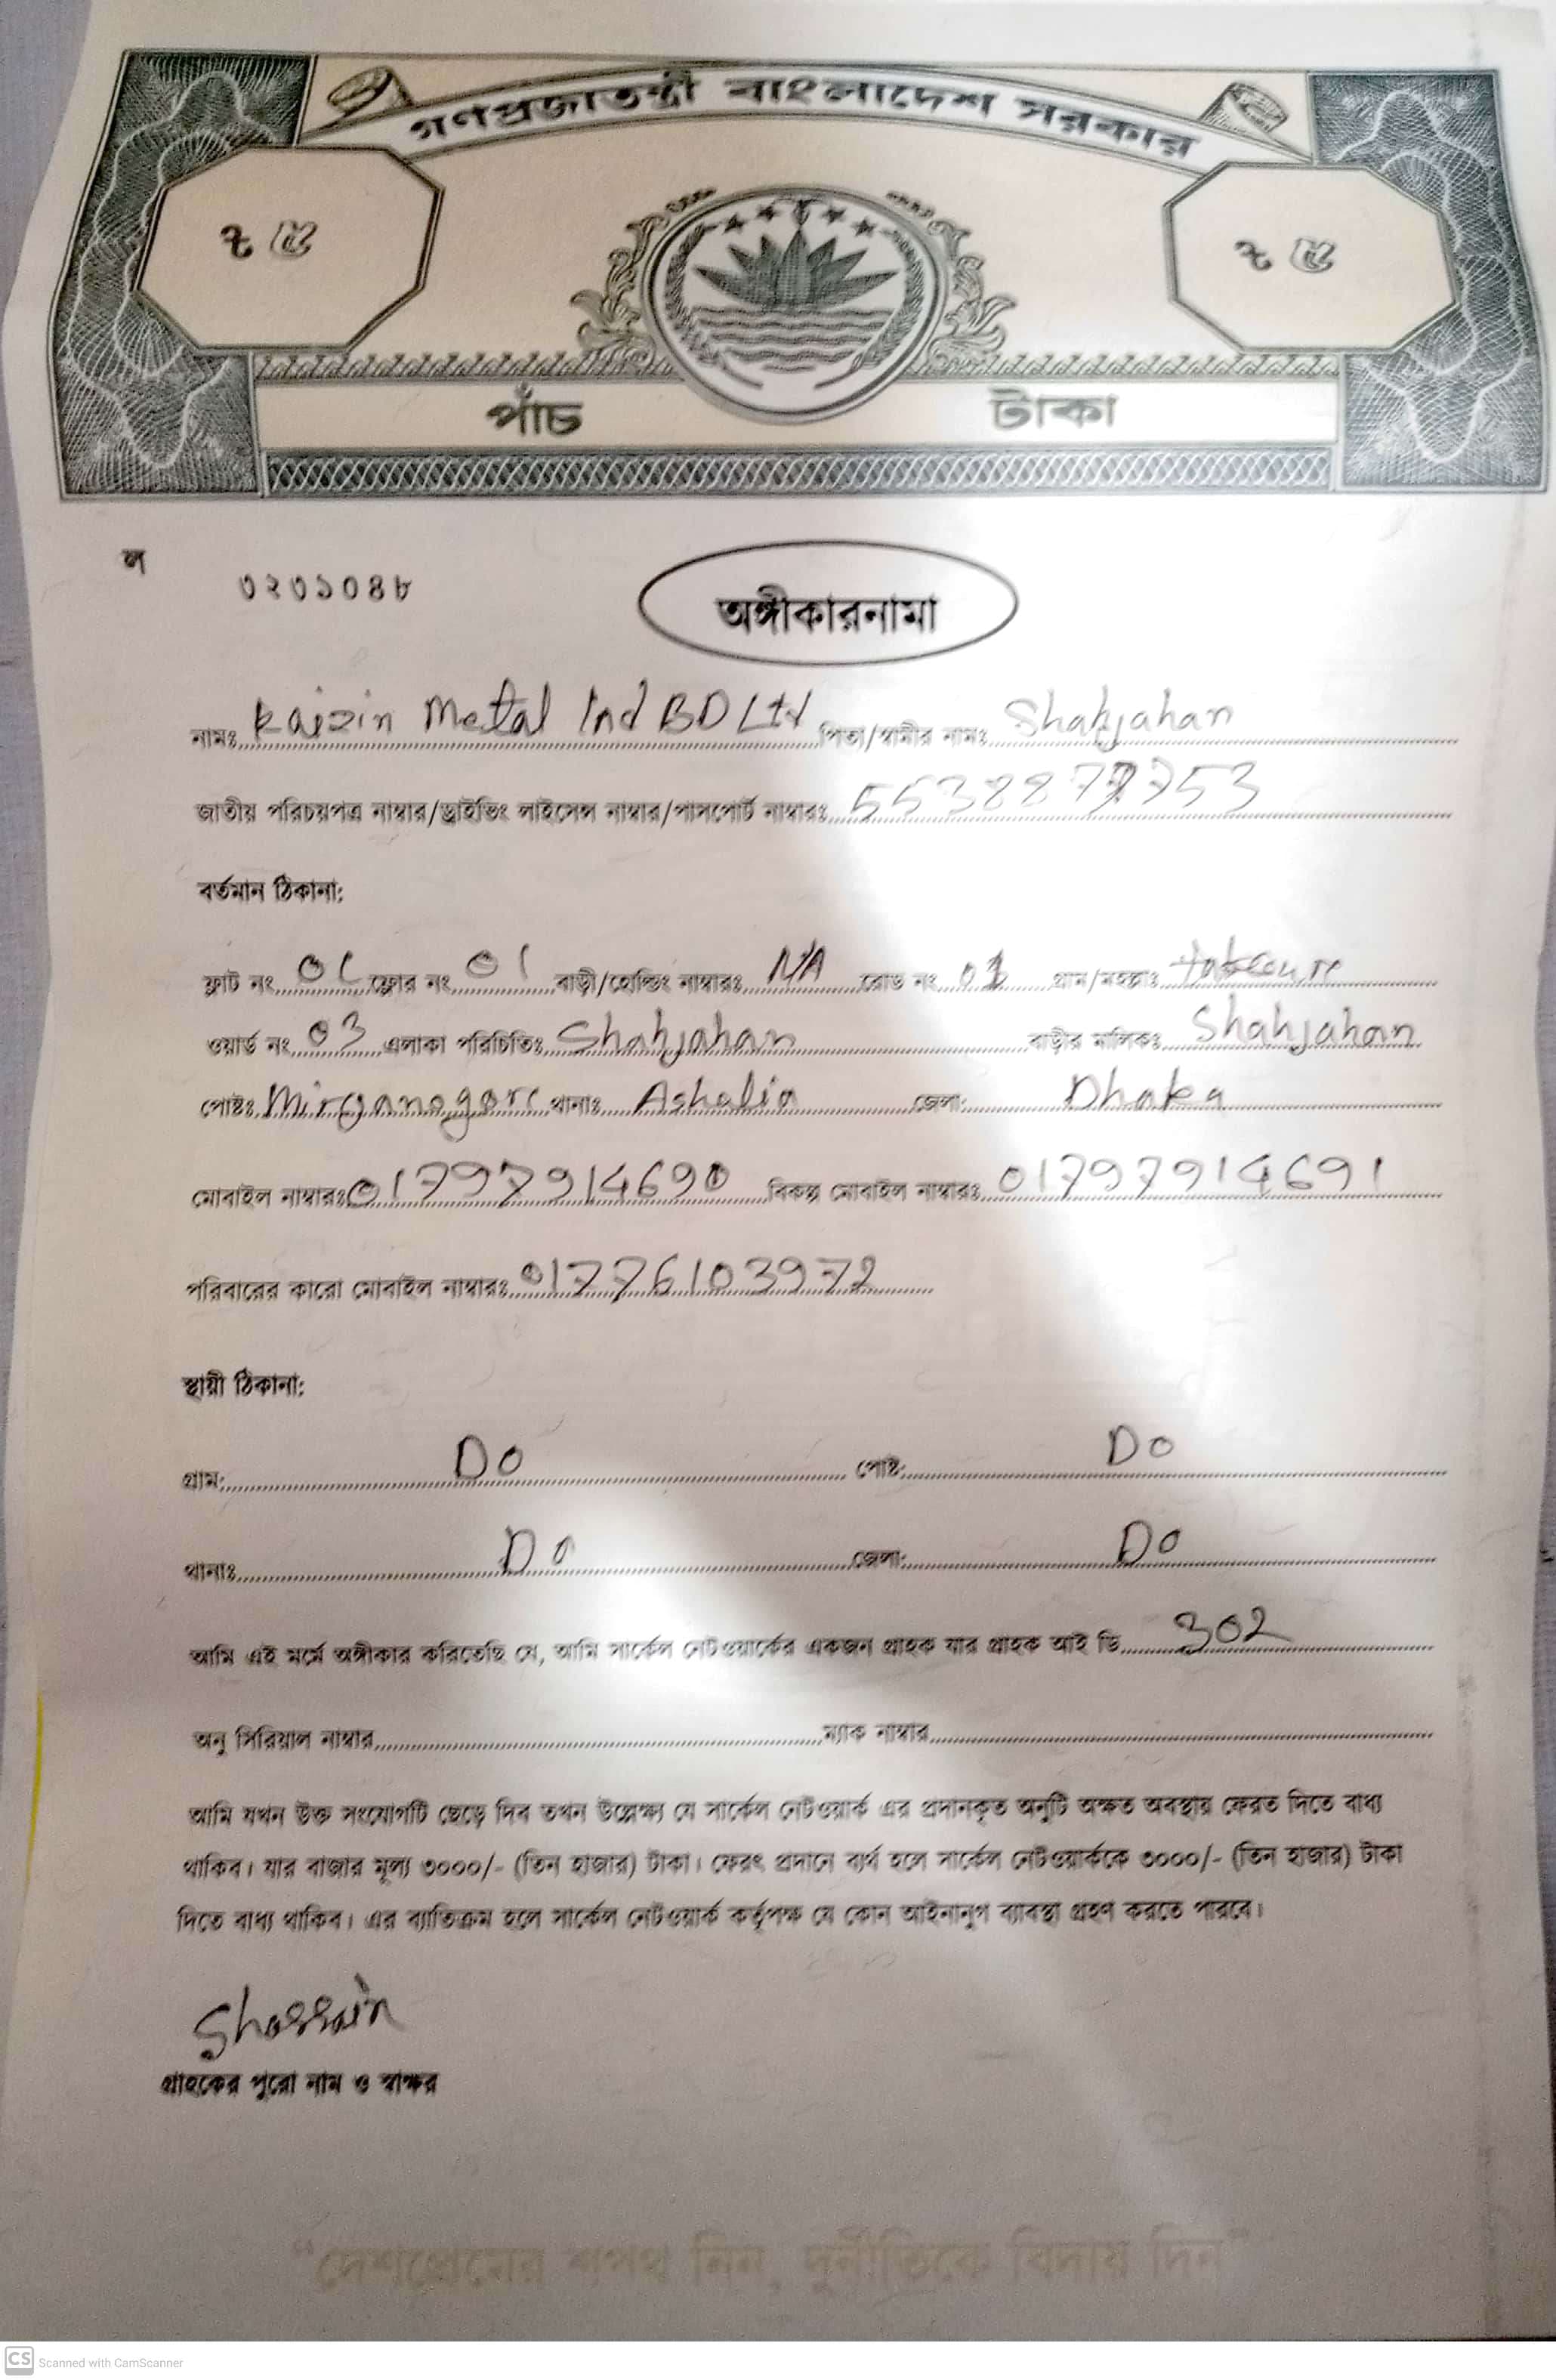 গণপ্রজাতন্ত্রী বাংলাদেশ সরকার
৳ ৫ ৳ ৫
পাঁচ টাকা
ল
৩২৩১০৪৮
অঙ্গীকারনামা
নামঃ Kaizin Metal Ind BD Ltd পিতা/স্বামীর নামঃ Shahjahan
জাতীয় পরিচয়পত্র নাম্বার/ড্রাইভিং লাইসেন্স নাম্বার/পাসপোর্ট নাম্বারঃ
বর্তমান ঠিকানা:
ফ্লাট নং 01 ফ্লোর নং 01 বাড়ী/হোল্ডিং নাম্বারঃ N/A রোড নং 01 গ্রাম/মহল্লাঃ
ওয়ার্ড নং 03 এলাকা পরিচিতিঃ Shahjahan বাড়ীর মালিকঃ Shahjahan
পোষ্টঃ থানাঃ Ashulia জেলা: Dhaka
মোবাইল নাম্বারঃ 01797914690 বিকল্প মোবাইল নাম্বারঃ 01797914691
পরিবারের কারো মোবাইল নাম্বারঃ 01776103972
স্থায়ী ঠিকানা:
গ্রাম: DO পোষ্ট: DO
থানাঃ DO জেলা: DO
আমি এই মর্মে অঙ্গীকার করিতেছি যে, আমি সার্কেল নেটওয়ার্কের একজন গ্রাহক যার গ্রাহক আই ডি 302
অনু সিরিয়াল নাম্বার ম্যাক নাম্বার
আমি যখন উক্ত সংযোগটি ছেড়ে দিব তখন উল্লেক্ষ্য যে সার্কেল নেটওয়ার্ক এর প্রদানকৃত অনুটি অক্ষত অবস্থায় ফেরত দিতে বাধ্য
থাকিব। যার বাজার মূল্য ৩০০০/- (তিন হাজার) টাকা। ফেরৎ প্রদানে ব্যর্থ হলে সার্কেল নেটওয়ার্ককে ৩০০০/- (তিন হাজার) টাকা
দিতে বাধ্য থাকিব। এর ব্যাতিক্রম হলে সার্কেল নেটওয়ার্ক কর্তৃপক্ষ যে কোন আইনানুগ ব্যাবস্থা গ্রহণ করতে পারবে।
Shossain
গ্রাহকের পুরো নাম ও স্বাক্ষর
“দেশপ্রেমের শপথ নিন, দুর্নীতিকে বিদায় দিন”
CS Scanned with CamScanner